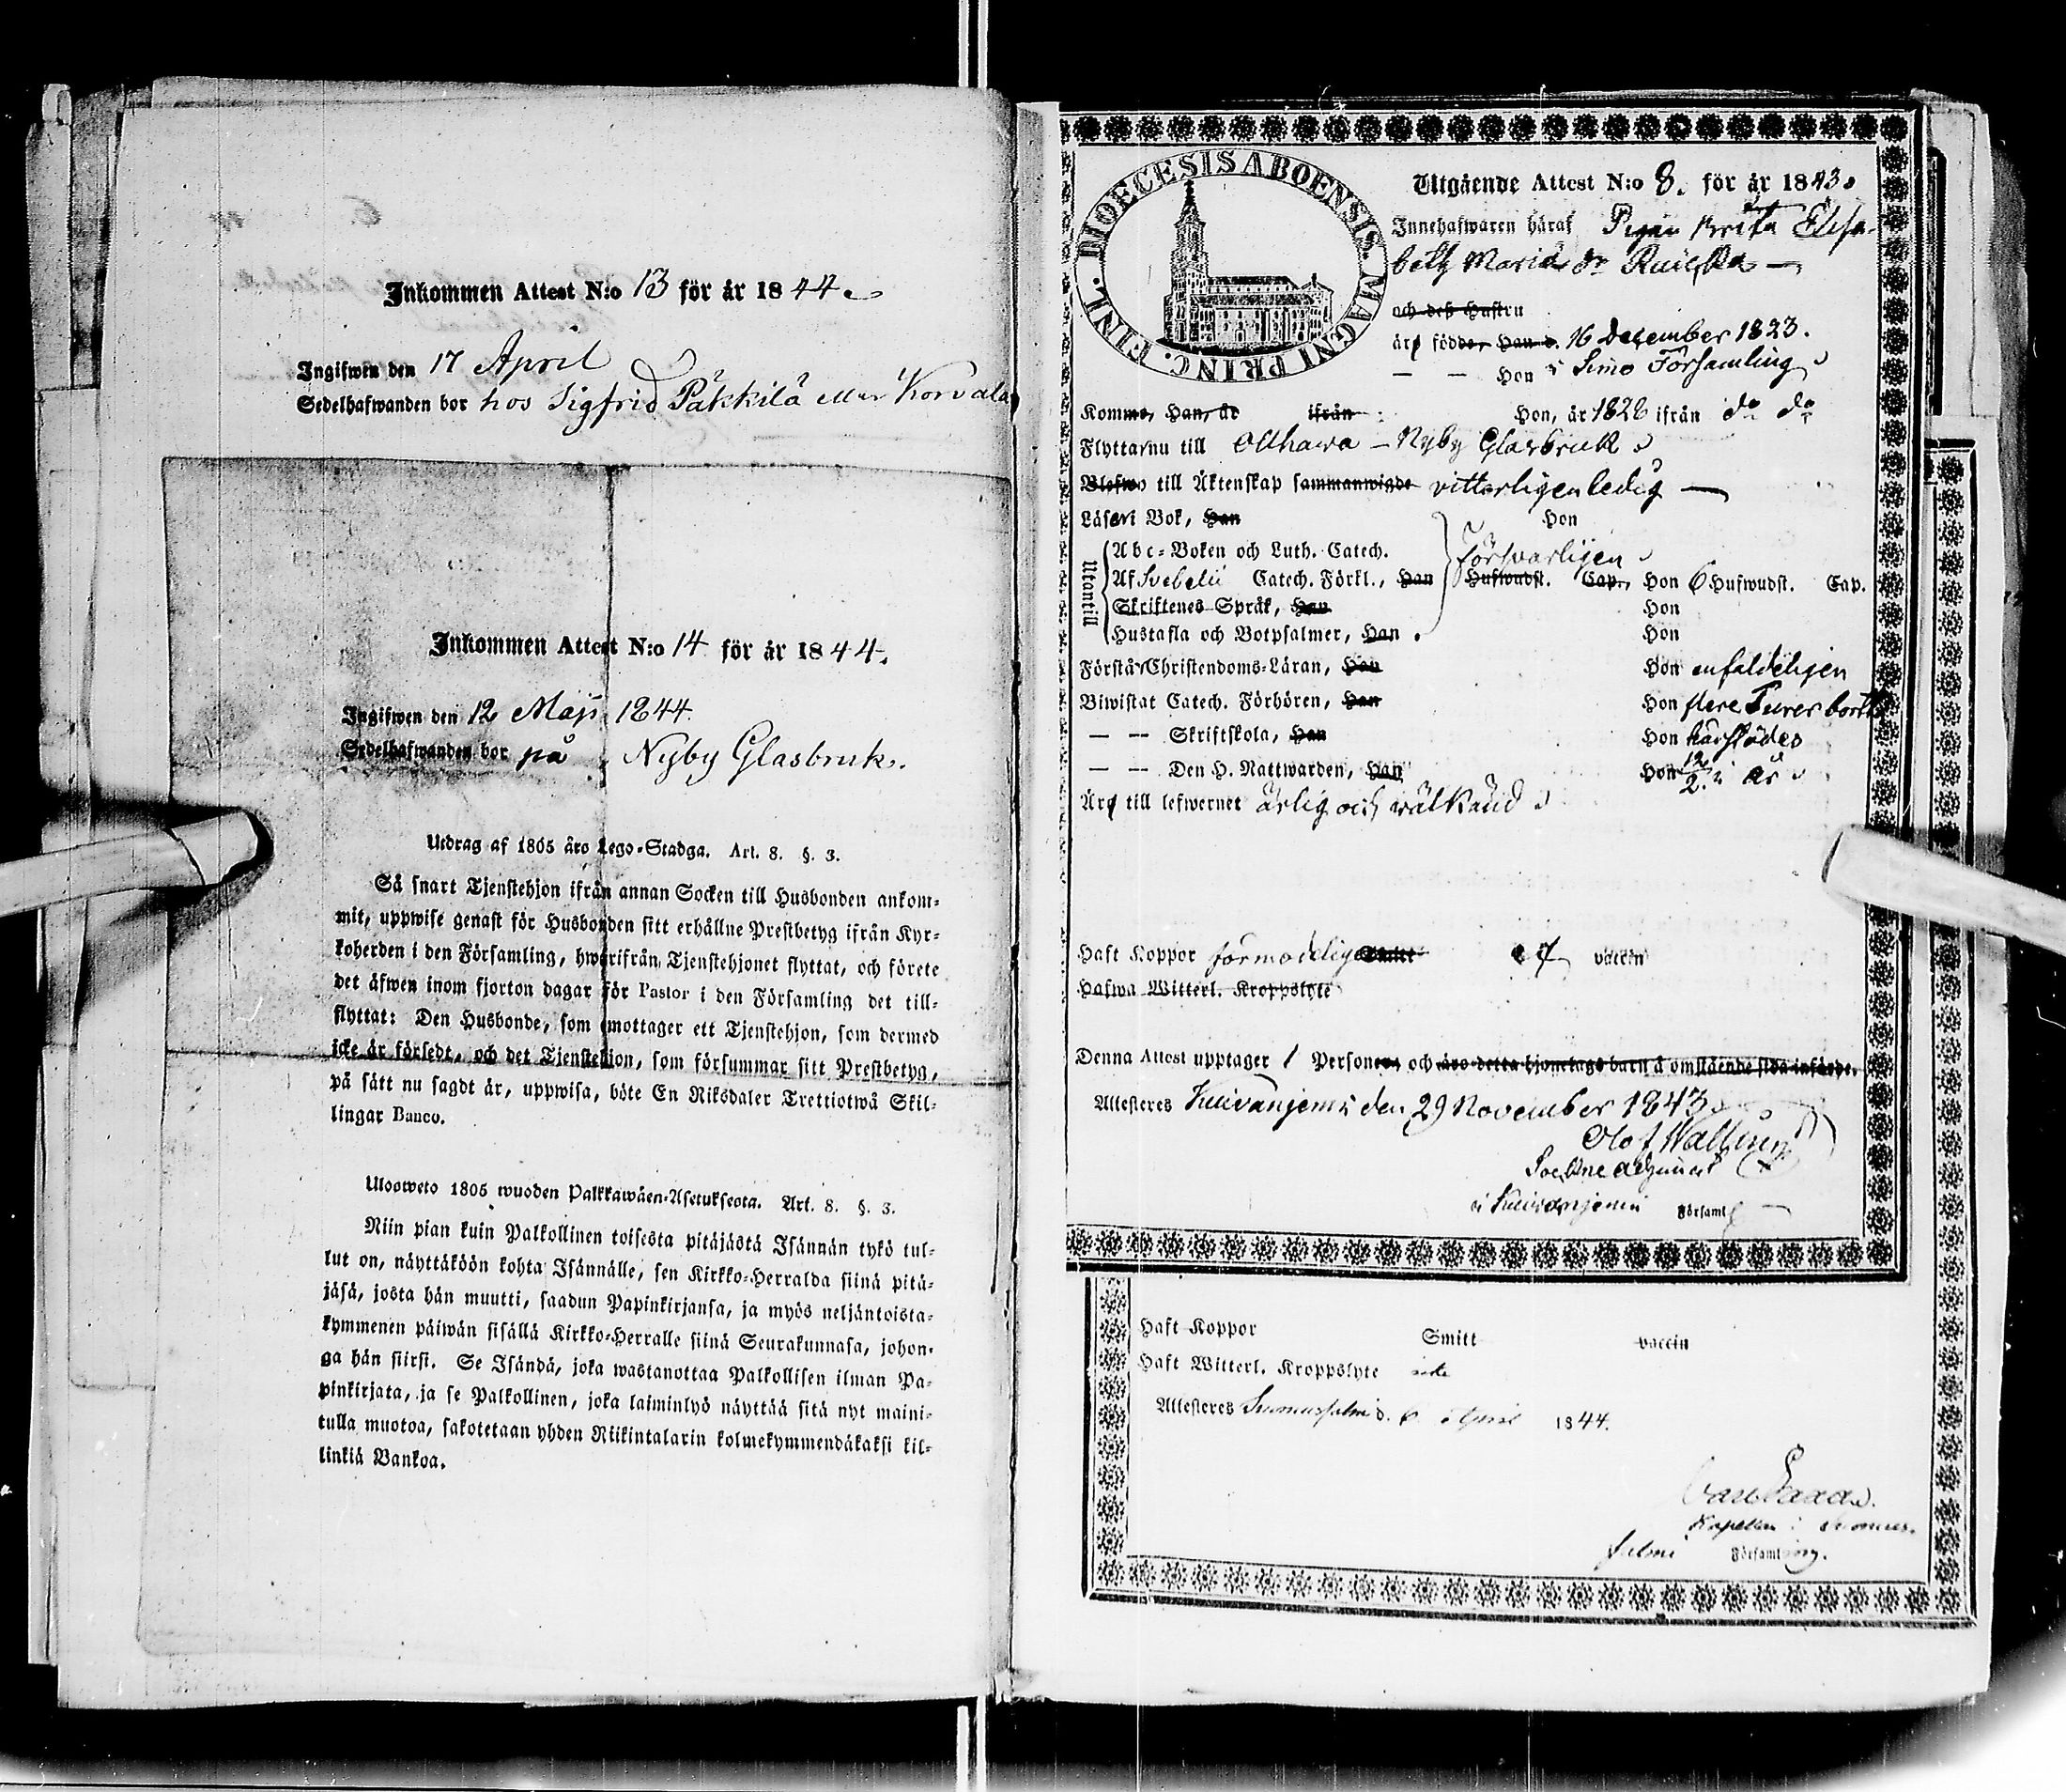 Inkommen Attest N:o 13 för år 1844.
Ingifwen den 17 April
Sedelhafwanden bor hos Sigfrid Päkkilä eller Korvala
Inkommen Attest N:o 14 för år 1844.
Ingifwen den 12 Maji 1844.
Sedelhafwanden bor på Nyby Glasbruk.
Utdrag af 1805 års Lego-Stadga. Art. 8. §. 3.
Så snart Tjenstehjon ifrån annan Socken till Husbonden ankom-
mit, uppwise genast för Husbonden sitt erhållne Prestbetyg ifrån Kyr-
koherden i den Församling, hwarifrån Tjenstehjonet flyttat, och förete
det äfwen inom fjorton dagar för Pastor i den Församling det till-
flyttat: Den Husbonde, som emottager ett Tjenstehjon, som dermed
icke är försedt, och det Tjenstehjon, som försummar sitt Prestbetyg,
på sätt nu sagdt är, uppwisa, böte En Riksdaler Trettiotwå Skil-
lingar Banco.
Ulosweto 1805 wuoden Palkkawäen-Asetuksesta. Art. 8. §. 3.
Niin pian kuin Palkollinen toisesta pitäjästä Isännän tykö tul-
lut on, näyttäköön kohta Isännälle, sen Kirkko-Herralda siinä pitä-
jäsä, josta hän muutti, saadun Papinkirjansa, ja myös neljäntoista-
kymmenen päiwän sisällä Kirkko-Herralle siinä Seurakunnasa, johon-
ga hän siirsi. Se Isändä, joka wastanottaa Palkollisen ilman Pa-
pinkirjata, ja se Palkollinen, joka laiminlyö näyttää sitä nyt maini-
tulla muotoa, sakotetaan yhden Riikintalarin kolmekymmendäkaksi kil-
linkiä Bankoa.
DIOECESIS ABOENSIS. MAGNI PRINC. FINL.
Utgående Attest N:o 8. för år 1843.
Innehafwaren häraf Pigan Brita Elisa-
beth Maria dr
och deß Hustru
äro födde, Han d. 16 December 1823.
— — Hon i Simo Församling
Komme, Han, år ifrån Hon, år 1828 ifrån do do
Flyttar nu till Olhava - Nyby Glasbruk
Blefwo till Äktenskap sammanwigde vitterligen ledig —
Läser i Bok, Han Hon
Utantill
Abc-Boken och Luth. Catech. försvarligen
Af Svebelii Catech. Förkl., Han Hufwudst. Cap., Hon 6 Hufwudst. Cap.
Skriftenes Språk, Han Hon
Hustafla och Botpsalmer, Han Hon
Förstår Christendoms-Läran, Han Hon enfaldeligen
Biwistat Catech. Förhören, Han Hon flere
— — Skriftskola, Han Hon härstädes
— — Den H. Nattwarden, Han Hon 12/2 i år
Är till lefwernet ärlig och wälkänd
Haft Koppor förmodeligen Smitt vaccin
Hafwa Witterl. Kroppslyte
Denna Attest upptager 1 Personer, och äro detta hjonelags barn å omstående sida införde.
Attesteres Kuivaniemi den 29 November 1843
Olof
i Kuivaniemi Församl
Haft Koppor Smitt vaccin
Haft Witterl. Kroppslyte icke
Attesteres Suomussalmi d. 6 April 1844.
Carl Saxa.
Kapellan i Suomus-
salmi Församling.